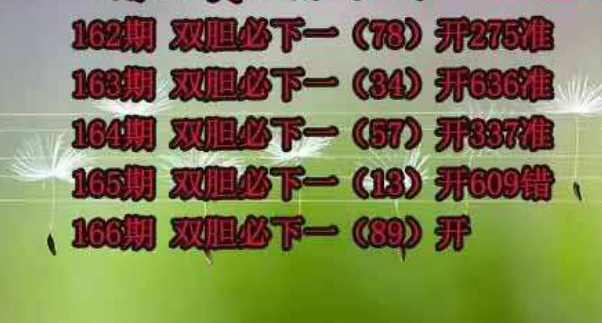 162期 双胆必下一（78）开275准
163期 双胆必下一（34）开636准
164期 双胆必下一（57）开337准
165期 双胆必下一（13）开609错
166期 双胆必下一（89）开